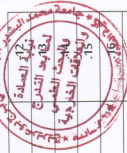 جامعة محمد البشير
نيابة العمادة
لما بعد التدرج
والبحث العلمي
والعلاقات الخارجية
.12
.13
.14
.15
.16